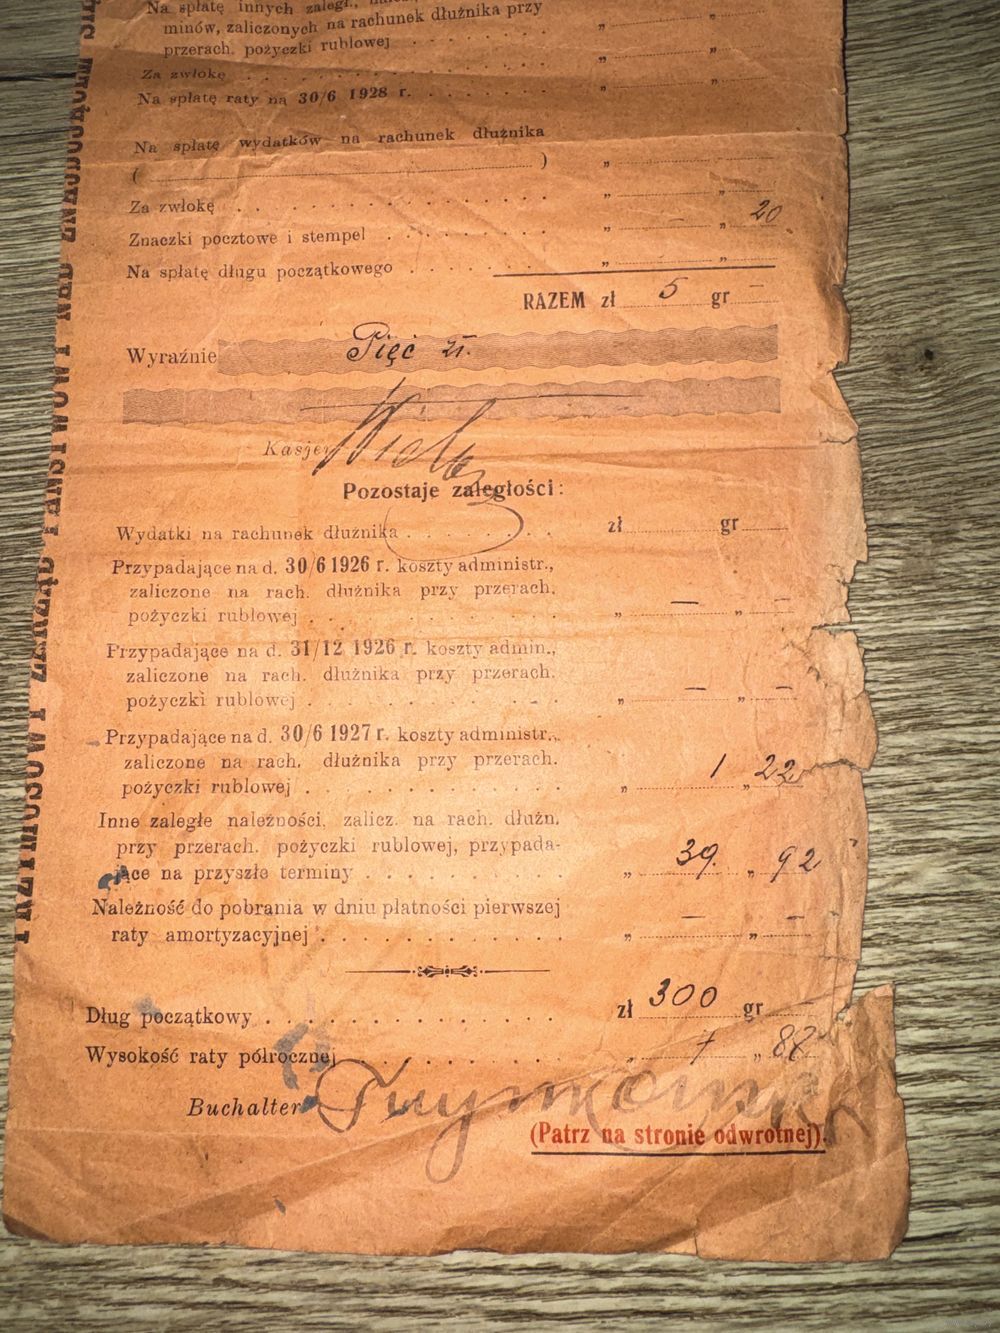 Na spłatę innych zaległ.,
minów, zaliczonych na rachunek dłużnika przy
przerach. pożyczki rublowej . . . . . . . „ „
Za zwłokę . . . . . . . . . . . . . „ „
Na spłatę raty na 30/6 1928 r. . . . . . . . „ „
Na spłatę wydatków na rachunek dłużnika
( ) „ „
Za zwłokę . . . . . . . . . . . . . „ „
Znaczki pocztowe i stempel . . . . . . . . „ — „ 20
Na spłatę długu początkowego . . . . . . . „ „
RAZEM zł 5 gr —
Wyraźnie Pięć zł.
Kasjer
Pozostaje zaległości:
Wydatki na rachunek dłużnika . . . . . . zł gr
Przypadające na d. 30/6 1926 r. koszty administr.,
zaliczone na rach. dłużnika przy przerach.
pożyczki rublowej . . . . . . . . . . „ — „ —
Przypadające na d. 31/12 1926 r. koszty admin.,
zaliczone na rach. dłużnika przy przerach.
pożyczki rublowej . . . . . . . . . . „ — „ —
Przypadające na d. 30/6 1927 r. koszty administr.,
zaliczone na rach. dłużnika przy przerach.
pożyczki rublowej . . . . . . . . . . „ 1 „ 22
Inne zaległe należności, zalicz. na rach. dłużn.
przy przerach. pożyczki rublowej, przypada-
jące na przyszłe terminy . . . . . . . . „ 39. „ 92
Należność do pobrania w dniu płatności pierwszej
raty amortyzacyjnej . . . . . . . . . „ — „ —
Dług początkowy . . . . . . . . . . . zł 300 gr
Wysokość raty półrocznej . . . . . . . . „ 7 „ 87
Buchalter
(Patrz na stronie odwrotnej).
PRZYMUSOWY ZARZĄD PAŃSTWOWY NAD ZNAJDUJĄCEMI SIĘ